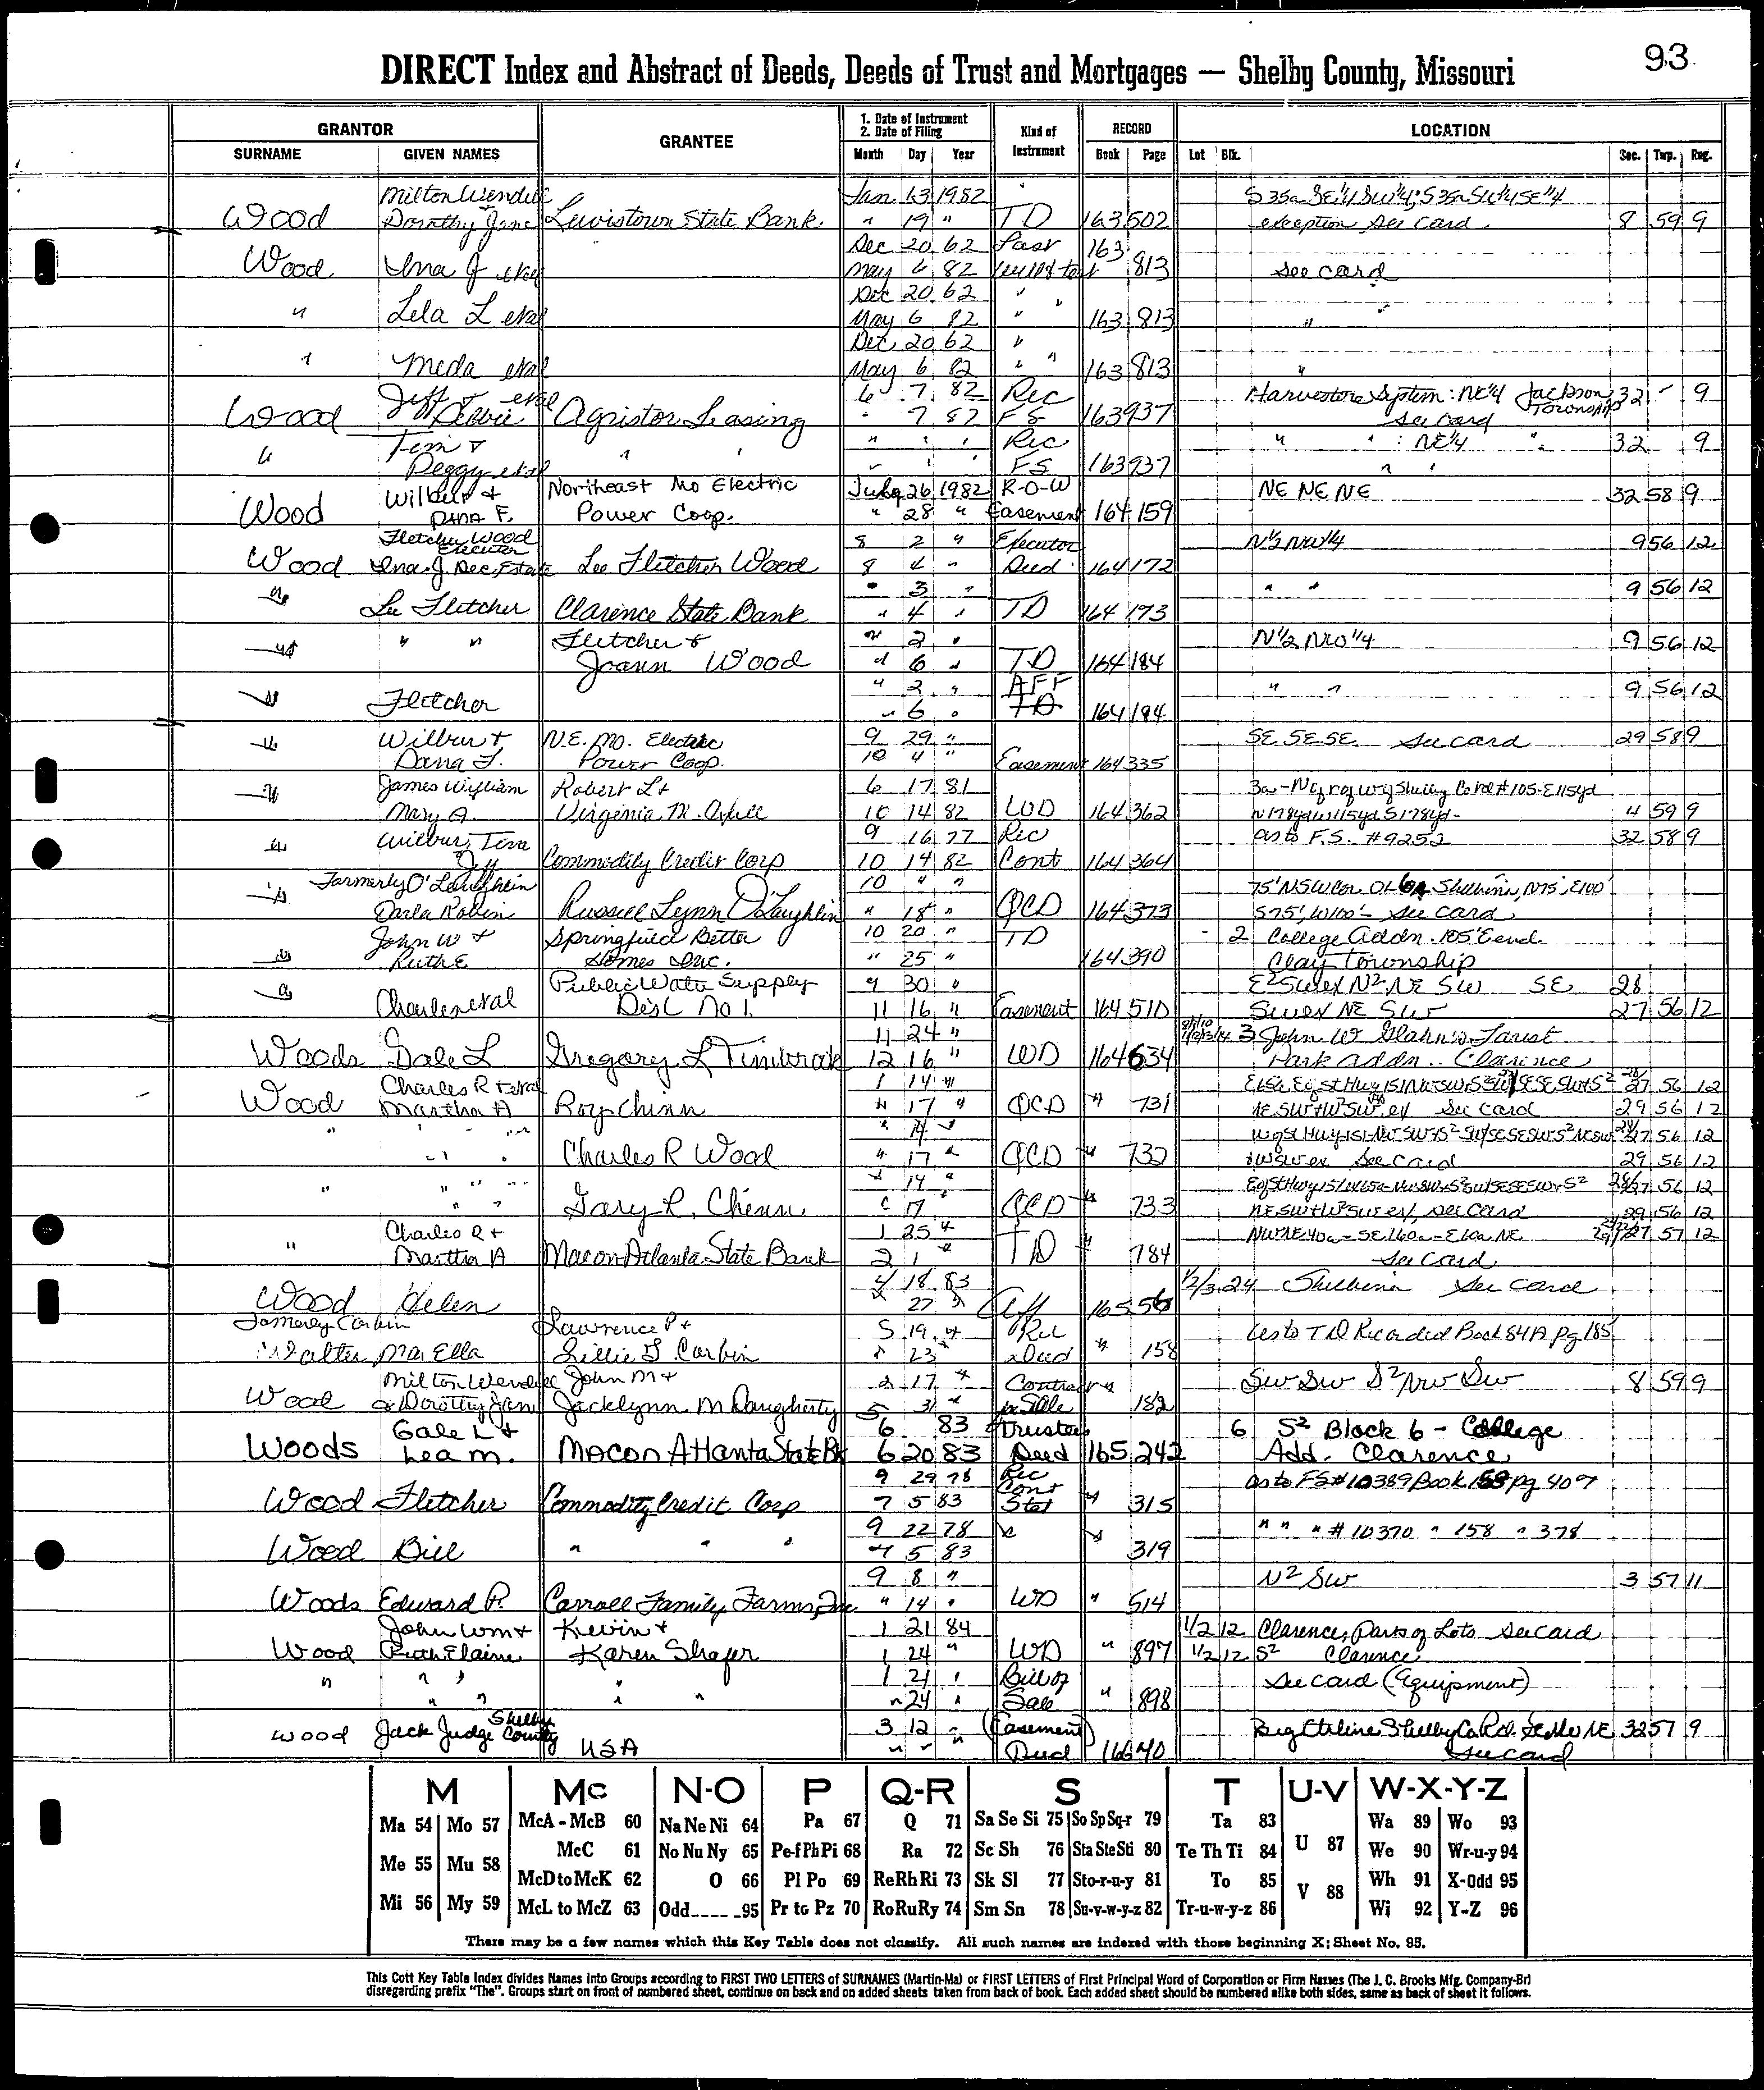 93
DIRECT Index and Abstract of Deeds, Deeds of Trust and Mortgages — Shelby County, Missouri
GRANTOR GRANTEE 1. Date of Instrument 2. Date of Filing Kind of Instrument RECORD LOCATION
SURNAME GIVEN NAMES Month Day Year Book Page Lot Blk. Sec. Twp. Rng.
Milton Wendell Jan 13 1982 S 35a SE¼ SW¼; S 35a SW¼ SE¼
Wood Dorothy Jane Lewistown State Bank. " 19 " TD 163 502 exception see card 8 59 9
Dec 20 62 Last 163
Wood Ina J etal May 6 82 will & test 813 see card
Dec 20 62 " "
" Lela L etal May 6 82 " 163 813 "
Dec 20 62 "
" Meda etal May 6 82 " " 163 813 "
Jeff & etal 6 7 82 Rec Harvestore System: NE¼ Jackson Township 32 - 9
Wood Debbie Agristor Leasing " 7 82 FS 163 937 see card
Tim & " " " Rec " " : NE¼ " 32 9
" Peggy etal " " " " " FS 163 937 " "
Wilbur & Northeast Mo Electric July 26 1982 R-O-W NE NE NE 32 58 9
Wood Dana F. Power Coop. " 28 " Easement 164 159
Fletcher Wood Executor 8 2 " Executor N½ NW¼ 9 56 12
Wood Ina J. Dec, Estate Lee Fletcher Wood 8 4 " Deed 164 172
" 3 " " " 9 56 12
" Lee Fletcher Clarence State Bank " 4 " TD 164 173
" " " Fletcher & " 2 " N½ NW¼ 9 56 12
Joann Wood " 6 " TD 164 184
" 2 " AFF " " 9 56 12
" Fletcher " 6 " TD 164 194
" Wilbur & N.E. Mo. Electric 9 29 " SE SE SE see card 29 58 9
Dana F. Power Coop. 10 4 " Easement 164 335
" James William Robert L &  6 17 81
Mary A. Virginia M. 10 14 82 WD 164 362 4 59 9
" Wilbur, Tim 9 16 77 Rec as to F.S. #9252 32 58 9
Jeff Commodity Credit Corp 10 14 82 Cont 164 364
" Formerly O'Laughlin 10 " " Shelbina, N75', E100'
Darla Robin Russell Lynn O'Laughlin " 18 " QCD 164 373 S75', W100' - see card
John W & Springfield Better 10 20 " TD - 2 College Addn. 105' E end
" Ruth E. Homes Inc. " 25 " 164 390 Clay Township
Public Water Supply 9 30 " E²SW ex N² NE SW SE 28
" Charles etal Dist No 1. 11 16 " Easement 164 510 SW ex NE SW 27 56 12
11 24 " 3 John W Glahn's Forest
Woods Gale L Gregory L Timbrook 12 16 " WD 164 634 Park addn. Clarence
Charles R & etal 1 14 " 27 56 12
Wood Martha A Roy Chinn " 17 " QCD " 731 see card 29 56 12
" " " " " 14 " 27 56 12
" " Charles R Wood " 17 " QCD " 732 SWSW ex see card 29 56 12
" " " " 14 " 27 56 12
" " Gary L. Chinn " 17 QCD " 733 see card 29 56 12
" Charles R & 1 25 " 27 57 12
Martha A Macon-Atlanta State Bank 2 1 " TD " 784 see card
4 18 83 1/2/3 24 Shelbina see card
Wood Helen " 27 " Aff 165 56
Formerly Corbin Lawrence P & 5 19 " Rel as to TD Recorded Book 84A pg 185
Walter Mar Ella Lillie G Corbin " 23 " Deed " 158
Milton Wendell John M & 2 17 " Contract SW SW S² NW SW 8 59 9
Wood & Dorothy Jane Jacklynn M Daugherty 5 31 " for Sale " 182
Gale L & 6 83 Trustees 6 S² Block 6 - College
Woods Lea M. Macon Atlanta State Bk 6 20 83 Deed 165 242 Add. Clarence
9 29 78 Rec as to FS #10389 Book 158 pg 409
Wood Fletcher Commodity Credit Corp 7 5 83 Cont Stat " 315
9 22 78 " " " " #10370 " 158 " 378
Wood Bill " " " 7 5 83 319
9 8 " N² SW 3 57 11
Woods Edward P. Carroll Family Farms, Inc " 14 " WD " 514
John Wm & Kevin & 1 21 84 1/2 12 Clarence, Parts of Lots see card
Wood Ruth Elaine Karen Shafer 1 24 " WD " 897 1/2 12 S² Clarence
" " " " 1 21 " Bill of see card (Equipment)
" " " " " 24 " Sale " 898
Wood Jack Judge Shelby County 3 12 " (Easement) 32 57 9
USA " " " Deed 166 40 see card
M Mc N-O P Q-R S T U-V W-X-Y-Z
Ma 54 Mo 57 McA - McB 60 Na Ne Ni 64 Pa 67 Q 71 Sa Se Si 75 So Sp Sq-r 79 Ta 83 Wa 89 Wo 93
McC 61 No Nu Ny 65 Pe-f Ph Pi 68 Ra 72 Sc Sh 76 Sta Ste Sti 80 Te Th Ti 84 U 87 We 90 Wr-u-y 94
Me 55 Mu 58 McD to McK 62 O 66 Pl Po 69 Re Rh Ri 73 Sk Sl 77 Sto-r-u-y 81 To 85 V 88 Wh 91 X-Odd 95
Mi 56 My 59 McL to McZ 63 Odd_____95 Pr to Pz 70 Ro Ru Ry 74 Sm Sn 78 Su-v-w-y-z 82 Tr-u-w-y-z 86 Wi 92 Y-Z 96
There may be a few names which this Key Table does not classify. All such names are indexed with those beginning X; Sheet No. 95.
This Cott Key Table Index divides Names into Groups according to FIRST TWO LETTERS of SURNAMES (Martin-Ma) or FIRST LETTERS of First Principal Word of Corporation or Firm Names (The J. C. Brooks Mfg. Company-Br)
disregarding prefix "The". Groups start on front of numbered sheet, continue on back and on added sheets taken from back of book. Each added sheet should be numbered alike both sides, same as back of sheet it follows.